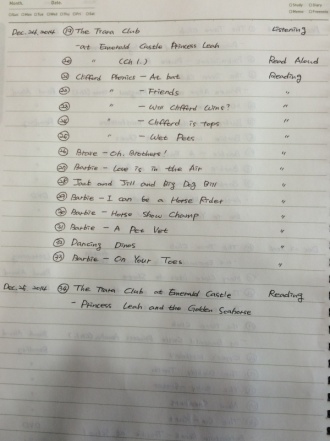 Dec. 24, 2014 ⑲ The Tiara Club Listening
-at Emerald Castle Princess Leah
⑳ " (Ch 1.) Read Aloud
㉑ Clifford Phonics - At bat Reading
㉒ " - Friends "
㉓ " - Wet Clifford "
㉔ " - Clifford is tops "
㉕ " - Wet Pets "
㉖ - Oh, Brothers! "
㉗ Barbie - Love is in the Air "
㉘ and Jill and Big Dog Bill "
㉙ Barbie - I can be a Horse Rider "
㉚ Barbie - Horse Show Champ "
㉛ Barbie - A Pet Vet "
㉜ Dancing Dinos "
㉝ Barbie - On Your Toes "
Dec. 26, 2014 ㉞ The Tiara Club at Emerald Castle Reading
- Princess Leah and the Golden Seahorse